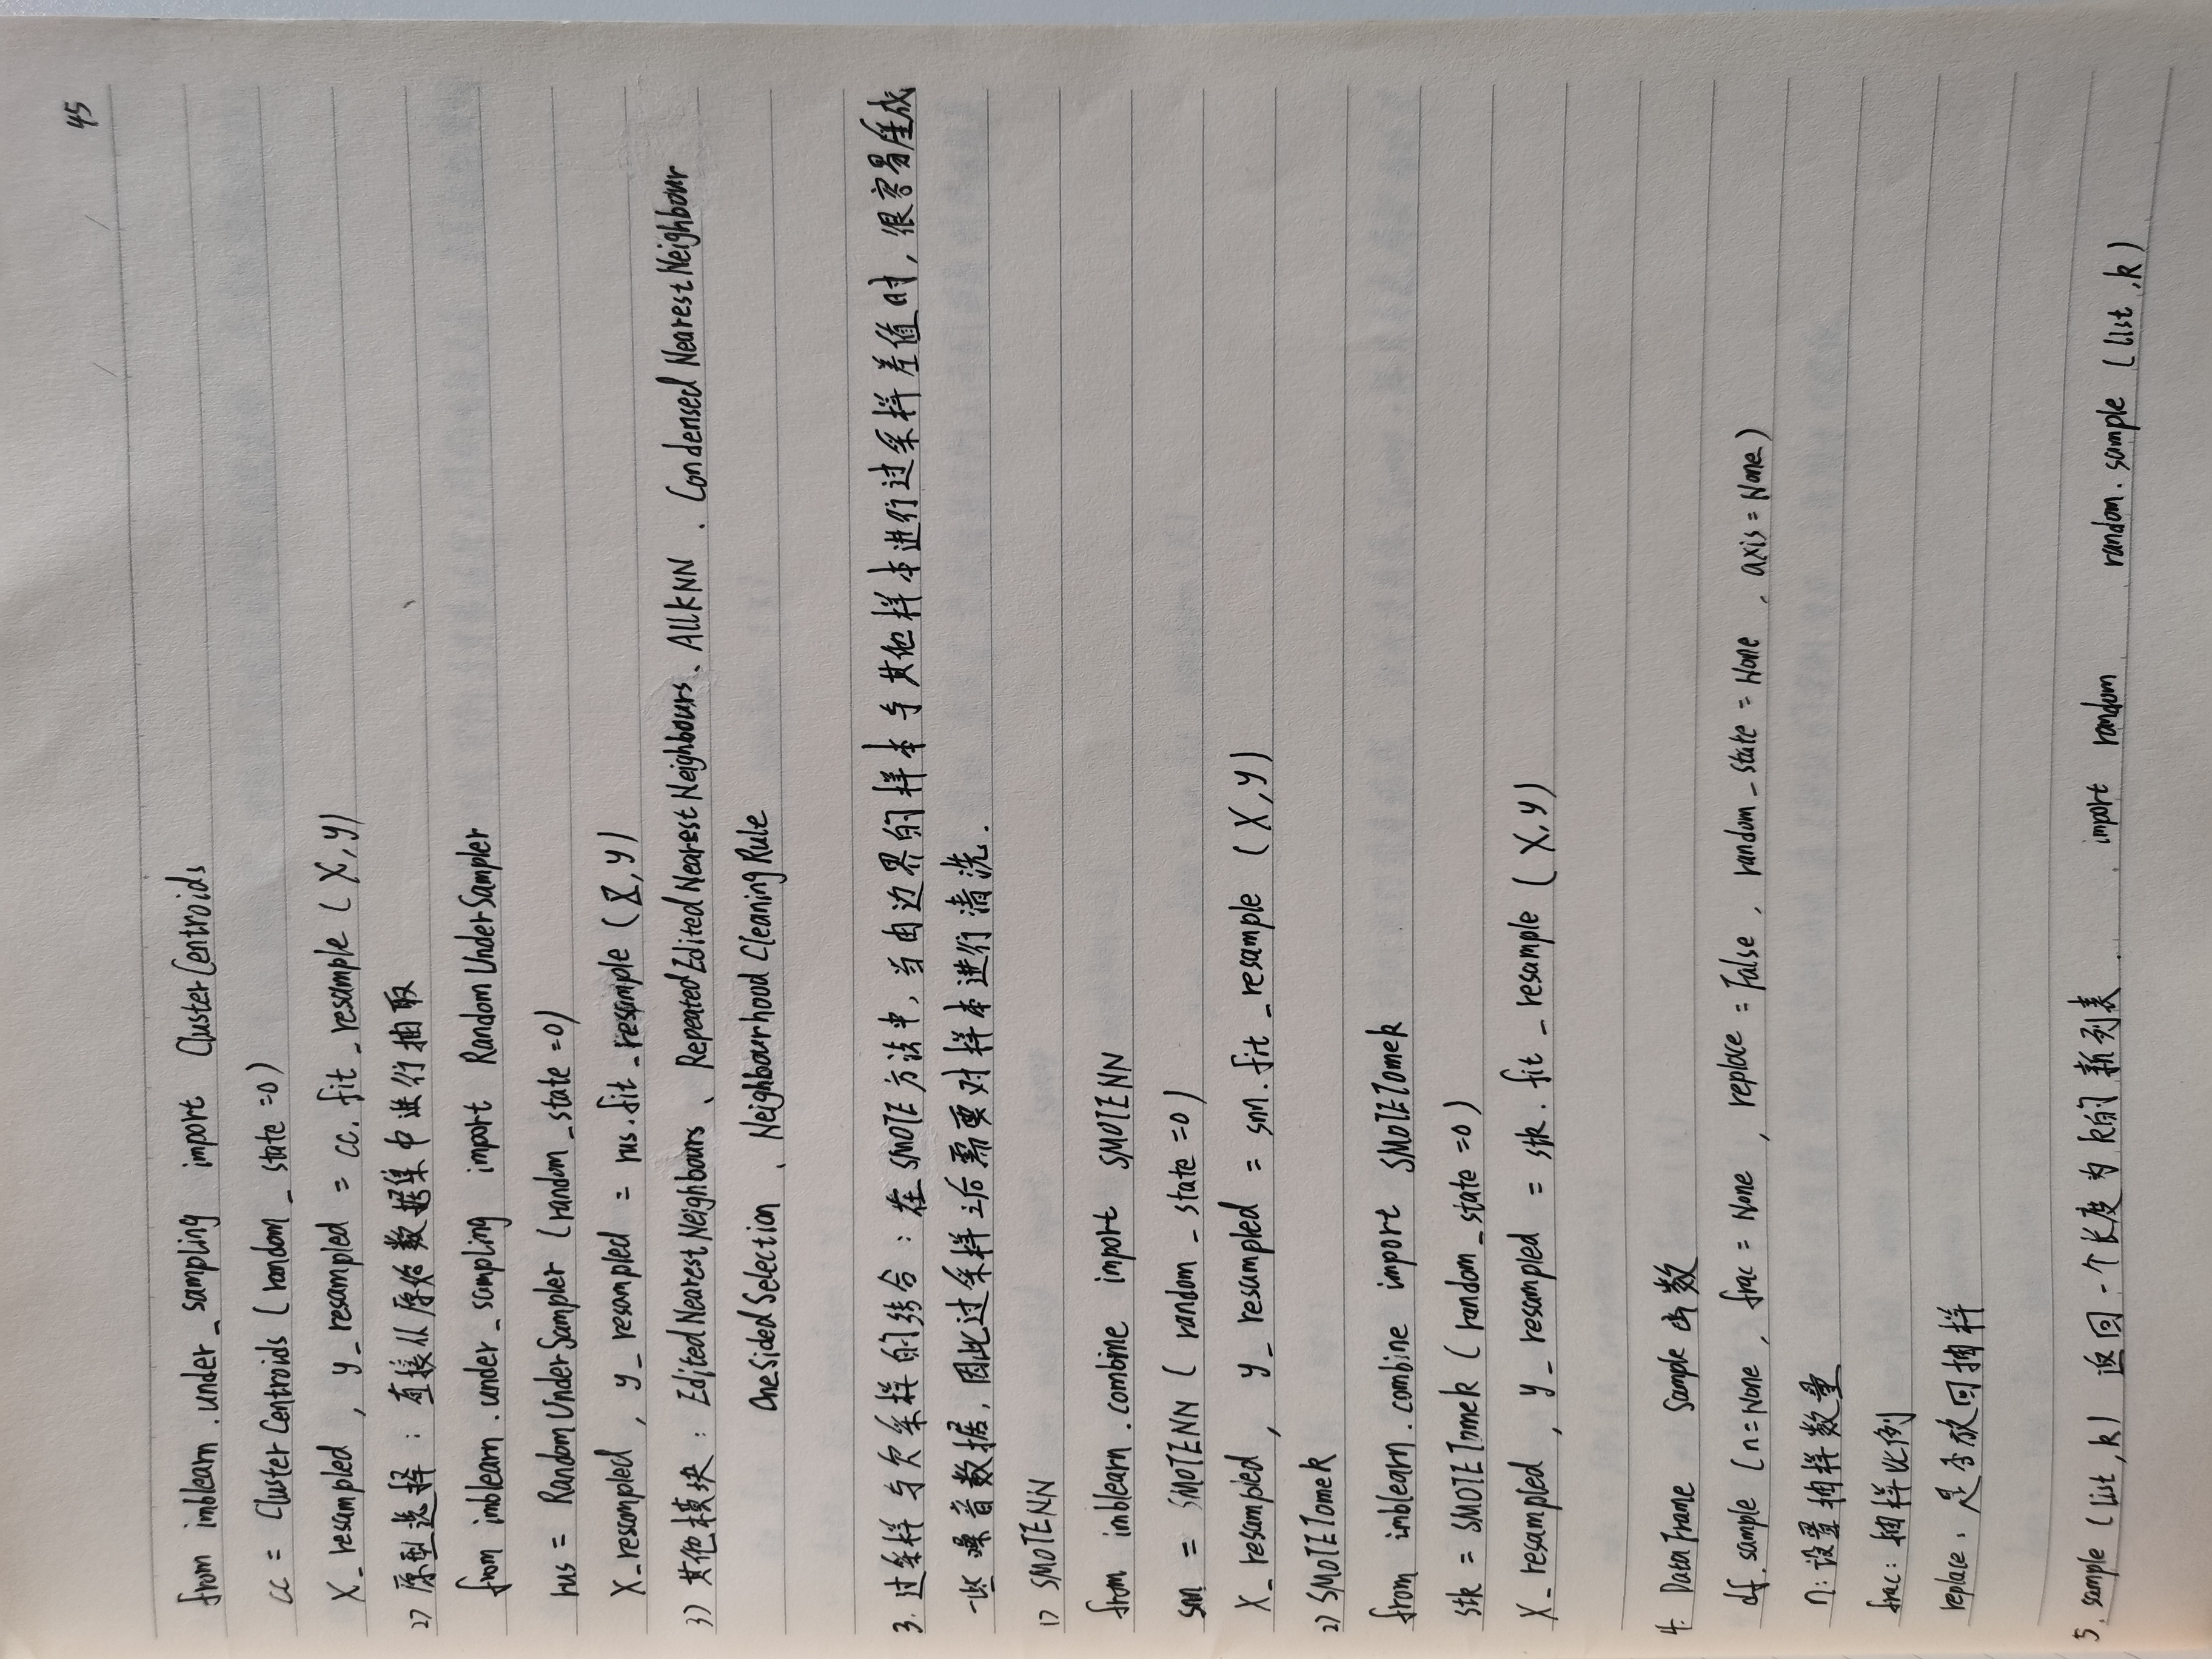 45
from imblearn.under_sampling import ClusterCentroids
cc = ClusterCentroids (random_state=0)
X_resampled, y_resampled = cc.fit_resample (X,y)
2) 原型选择：直接从原始数据集中进行抽取
from imblearn.under_sampling import RandomUnderSampler
rus = RandomUnderSampler (random_state=0)
X_resampled, y_resampled = rus.fit_resample (X,y)
3) 其他模块：EditedNearestNeighbours、RepeatedEditedNearestNeighbours、AllKNN、CondensedNearestNeighbour
OneSidedSelection、NeighbourhoodCleaningRule
3. 过采样与欠采样的结合：在SMOTE方法中，当由边界的样本与其他样本进行过采样差值时，很容易生成
一些噪音数据，因此过采样之后需要对样本进行清洗.
1) SMOTENN
from imblearn.combine import SMOTENN
snn = SMOTENN (random_state=0)
X_resampled, y_resampled = snn.fit_resample (X,y)
2) SMOTETomek
from imblearn.combine import SMOTETomek
stk = SMOTETomek (random_state=0)
X_resampled, y_resampled = stk.fit_resample (X,y)
4. DataFrame Sample函数
df.sample (n=None, frac=None, replace=False, random_state=None, axis=None)
n: 设置抽样数量
frac: 抽样比例
replace: 是否放回抽样
5. sample (list,k) 返回一个长度为k的新列表. import random random.sample (list,k)